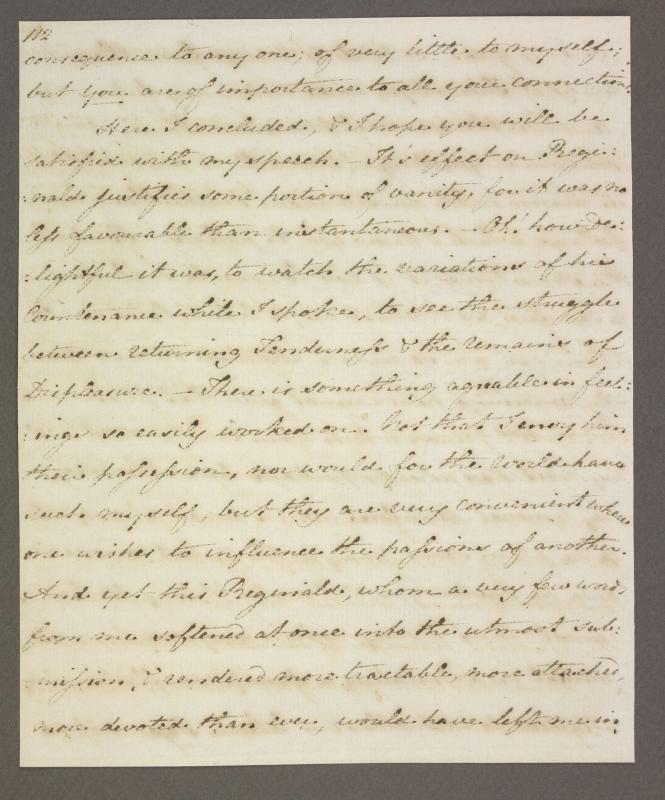 112
consequence to any one; of very little to myself;
but you are of importance to all your connections.
Here I concluded, & I hope you will be
satisfied with my speech. — It's effect on Regi:
:nald justifies some portion of vanity, for it was no
less favourable than instantaneous. — Oh! how de:
:lightful it was, to watch the variations of his
Countenance while I spoke, to see the struggle
between returning Tenderness & the remains of
Displeasure. — There is something agreable in feel:
:ings so easily worked on. Not that I envy him
their possession, nor would for the world have
such myself, but they are very convenient when
one wishes to influence the passions of another.
And yet this Reginald, whom a very few words
from me softened at once into the utmost sub:
:mission, & rendered more tractable, more attached,
more devoted than ever, would have left me in